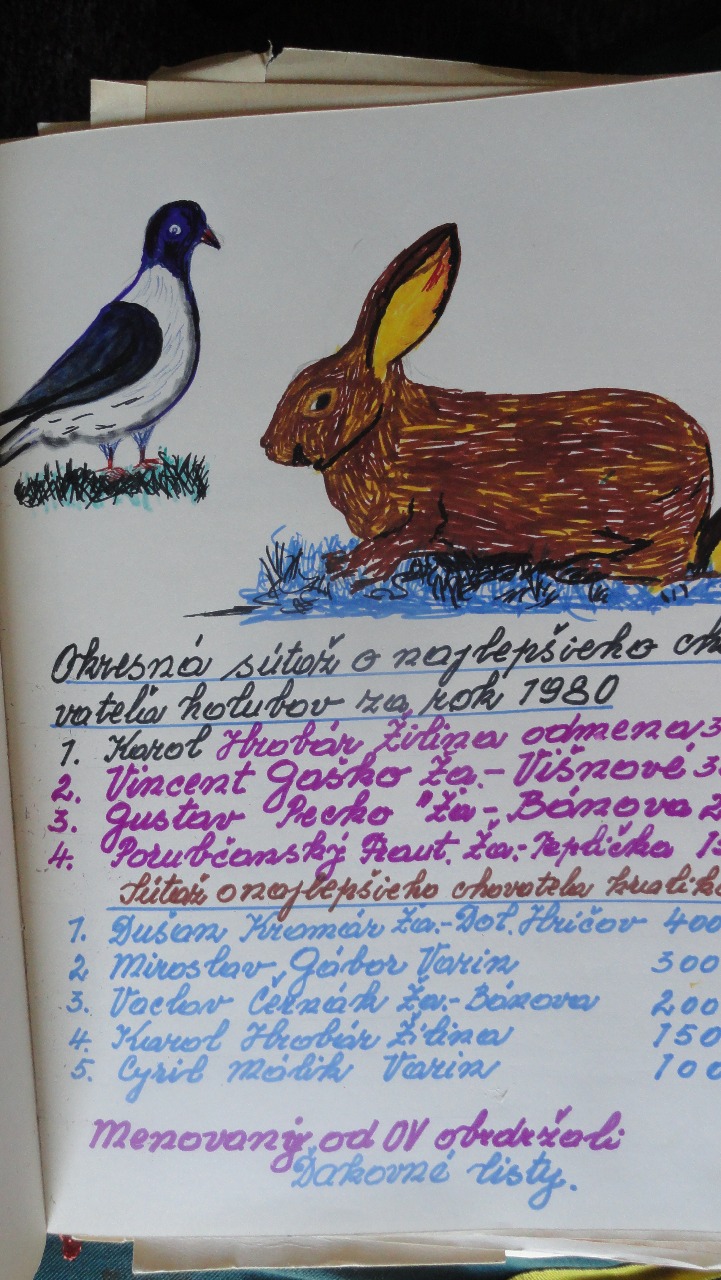 Okresná sútaž o najlepšieho cho
vateľa holubov za rok 1980
1. Karol Hrobár Žilina odmena 3
2. Vincent Gaško Ža.- Višnové 3
3. Gustav Pecko Ža.- Bánova 2
4. Porubčanský Ža.- Teplička 15
Sútaž o najlepšieho chovateľa králiko
1. Dušan Kromár Ža.- Dol. Hričov 400
2 Miroslav Gábor Varin 300
3. Vaclav Černák Ža.- Bánova 200
4. Karol Hrobár Žilina 150
5. Cyril Málik Varin 100
Menovaný od OV obdržali
Ďakovné listy.